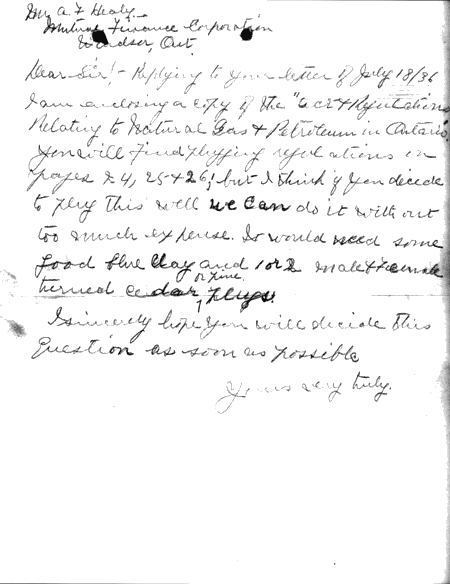 Mr. A. F. Healy
Mutual Finance Corporation
Windsor, Ont.
Dear Sir:- Replying to your letter of July 18/36
I am enclosing a copy of the "Acts & Regulations
Relating to Natural Gas & Petroleum in Ontario.
You will find plugging regulations on
pages 24, 25 & 26; but I think if you decide
to plug this well we can do it with out
too much expense. It would need some
good blue clay and 1 or 2 male & female
or pine
turned cedar plugs.
I sincerely hope you will decide this
question as soon as possible
Yours very truly.